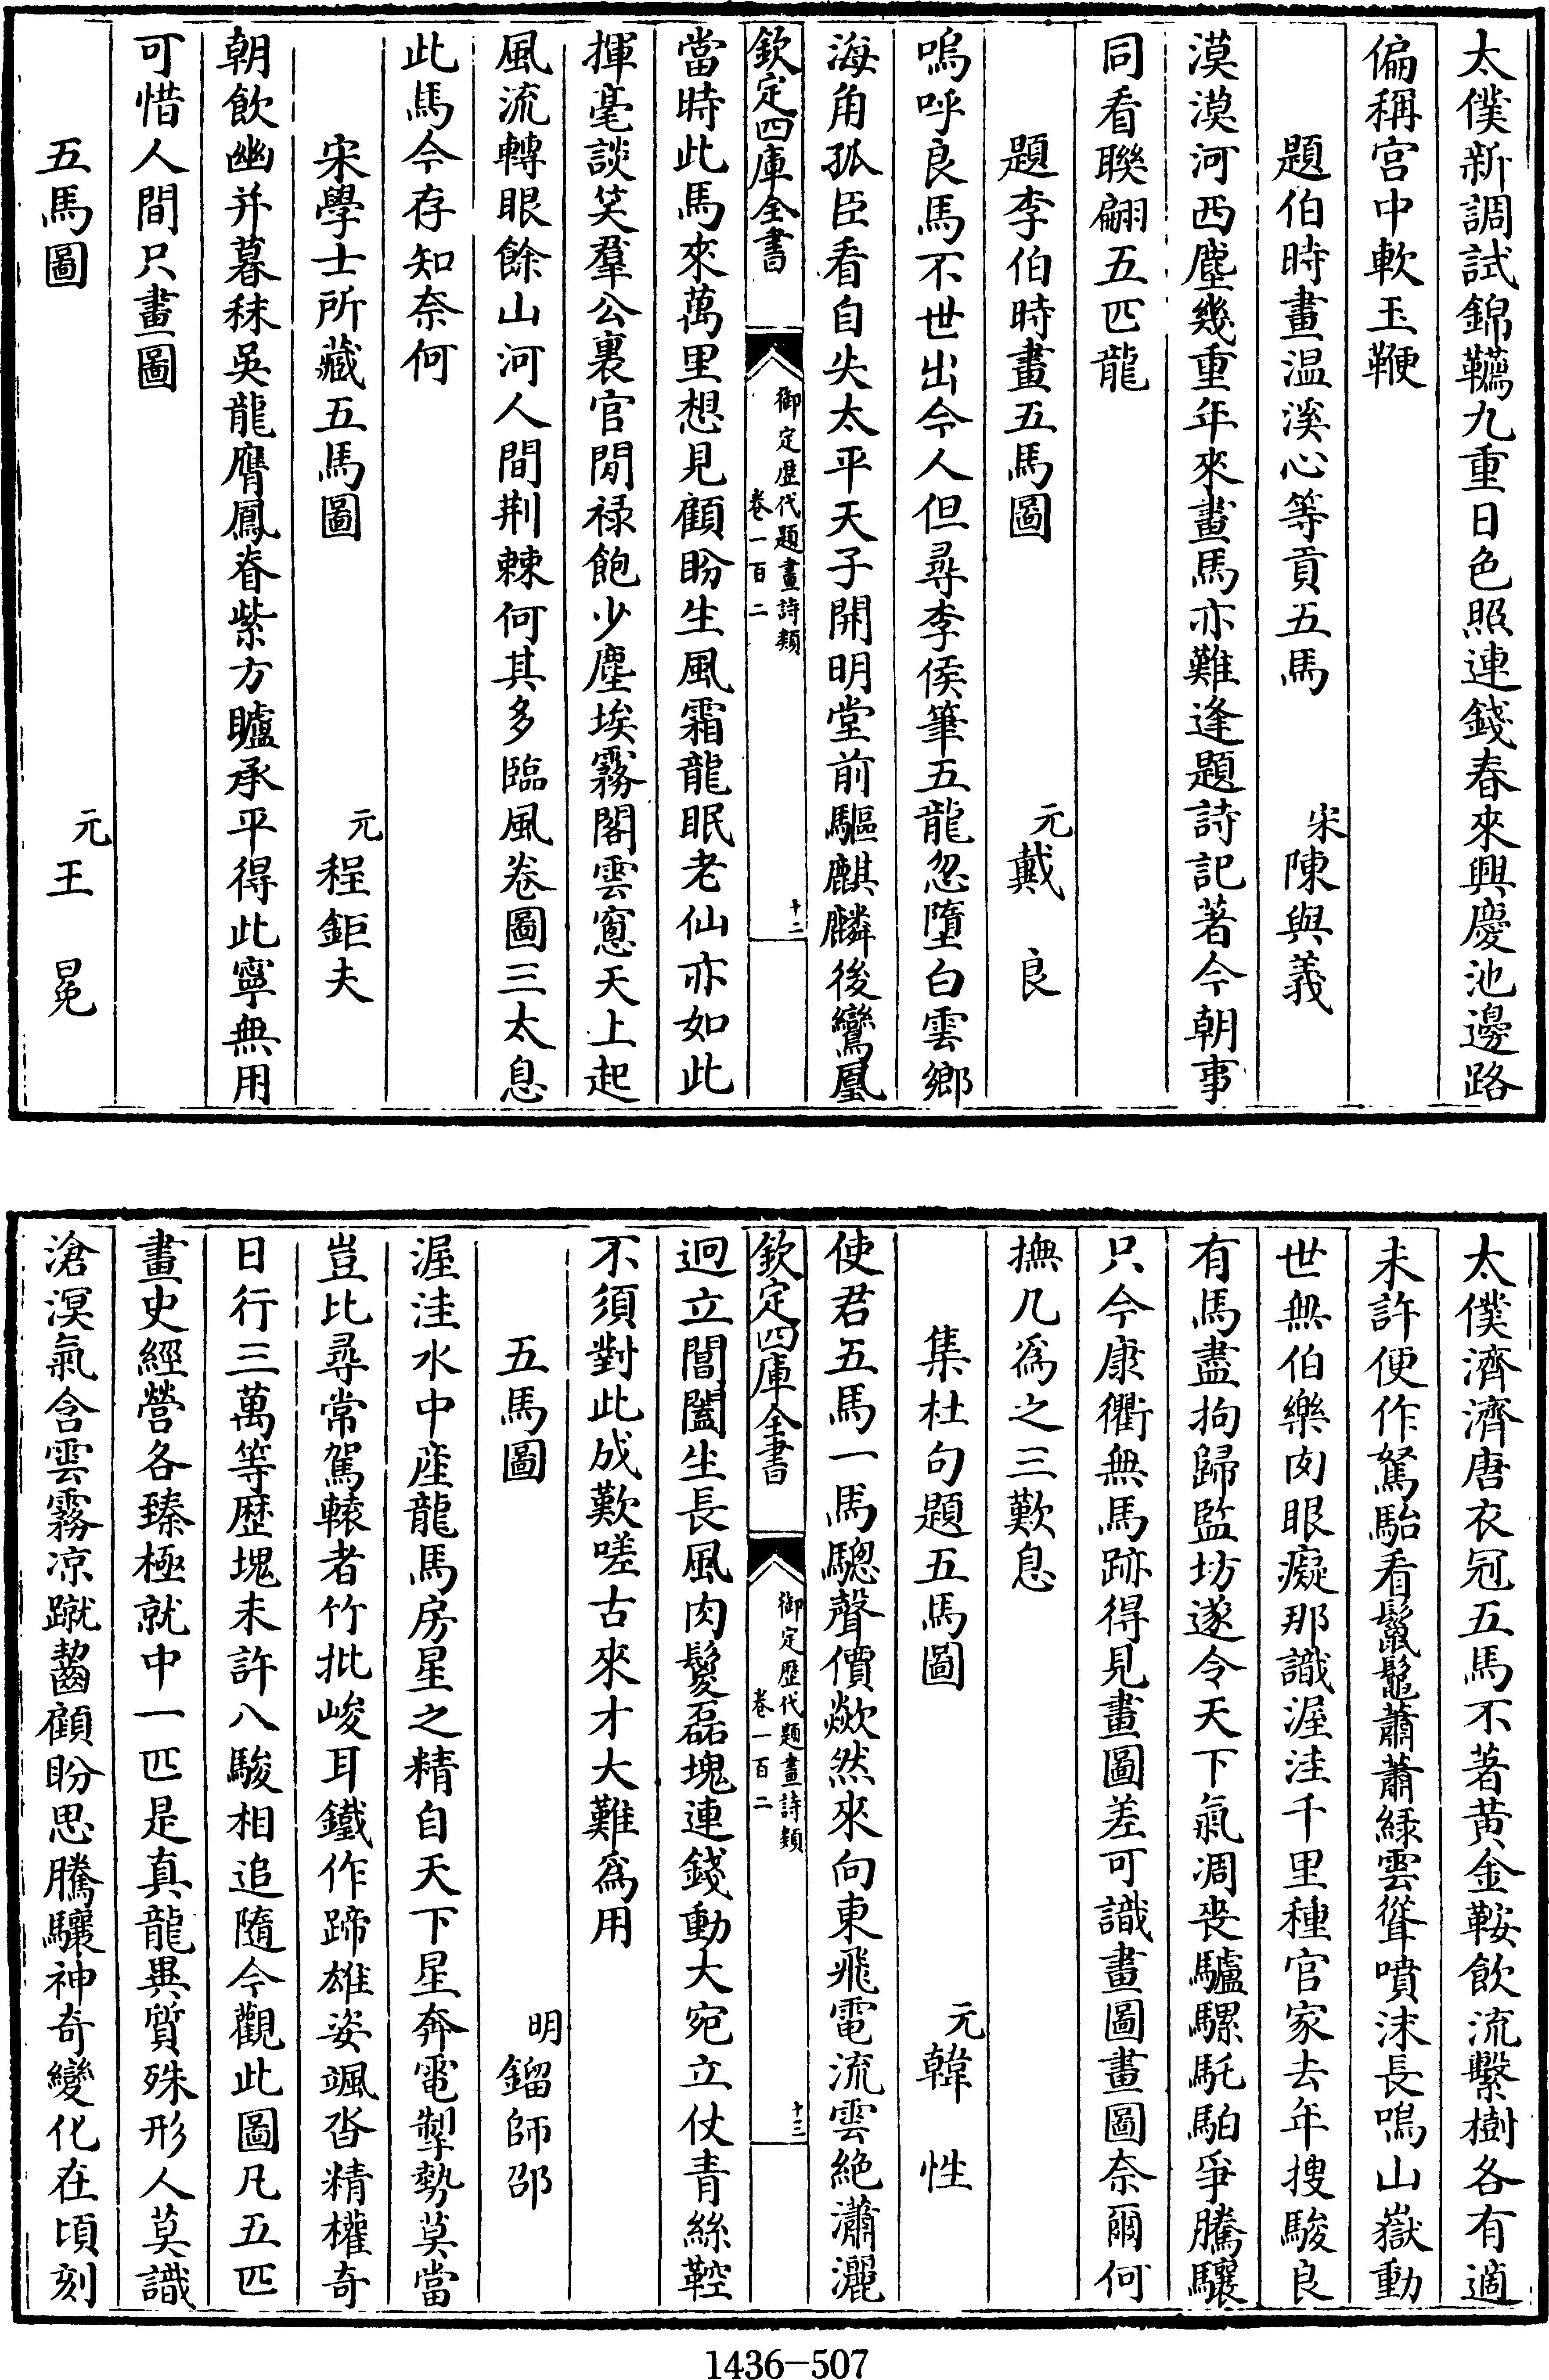 太僕新調試錦韉九重日色照連錢春來興慶池邊路
偏稱宫中軟玉鞭
題伯時畫温溪心等貢五馬 宋陳與義
漠漠河西塵幾重年來畫馬亦難逢題詩記著今朝事
同看聯翩五匹龍
題李伯時畫五馬圖 元戴良
嗚呼良馬不世出今人但尋李侯筆五龍忽墮白雲鄉
海角孤臣看自失太平天子開明堂前驅麒麟後鸞凰
欽定四庫全書 御定歴代題畫詩類 卷一百二 十二
當時此馬來萬里想見顧盼生風霜龍眠老仙亦如此
揮毫談笑羣公裏官閒禄飽少塵埃霧閣雲窻天上起
風流轉眼餘山河人間荆棘何其多臨風卷圖三太息
此馬今存知奈何
宋學士所藏五馬圖 元程鉅夫
朝飲幽并暮秣吳龍膺鳳脊紫方矑承平得此寧無用
可惜人間只畫圖
五馬圖 元王冕
太僕濟濟唐衣冠五馬不著黄金鞍飲流繫樹各有適
未許便作駑駘看鬣鬉蕭蕭緑雲聳噴沫長鳴山嶽動
世無伯樂肉眼癡那識渥洼千里種官家去年搜駿良
有馬盡拘歸監坊遂令天下氣凋喪驢騾駞駞爭騰驤
只今康衢無馬跡得見畫圖差可識畫圖畫圖奈爾何
撫几爲之三歎息
集杜句題五馬圖 元韓性
使君五馬一馬驄聲價歘然來向東飛電流雲絶瀟灑
欽定四庫全書 御定歴代題畫詩類 卷一百二 十三
迥立閶闔生長風肉騣磊塊連錢動大宛立仗青絲鞚
不須對此成歎嗟古來才大難爲用
五馬圖 明鎦師邵
渥洼水中産龍馬房星之精自天下星奔電掣勢莫當
豈比尋常駕轅者竹批峻耳鐵作蹄雄姿颯沓精權奇
日行三萬等歴塊未許八駿相追隨今觀此圖凡五匹
畫史經營各臻極就中一匹是真龍異質殊形人莫識
滄溟氣含雲霧凉蹴齧顧盼思騰驤神奇變化在頃刻
1436-507